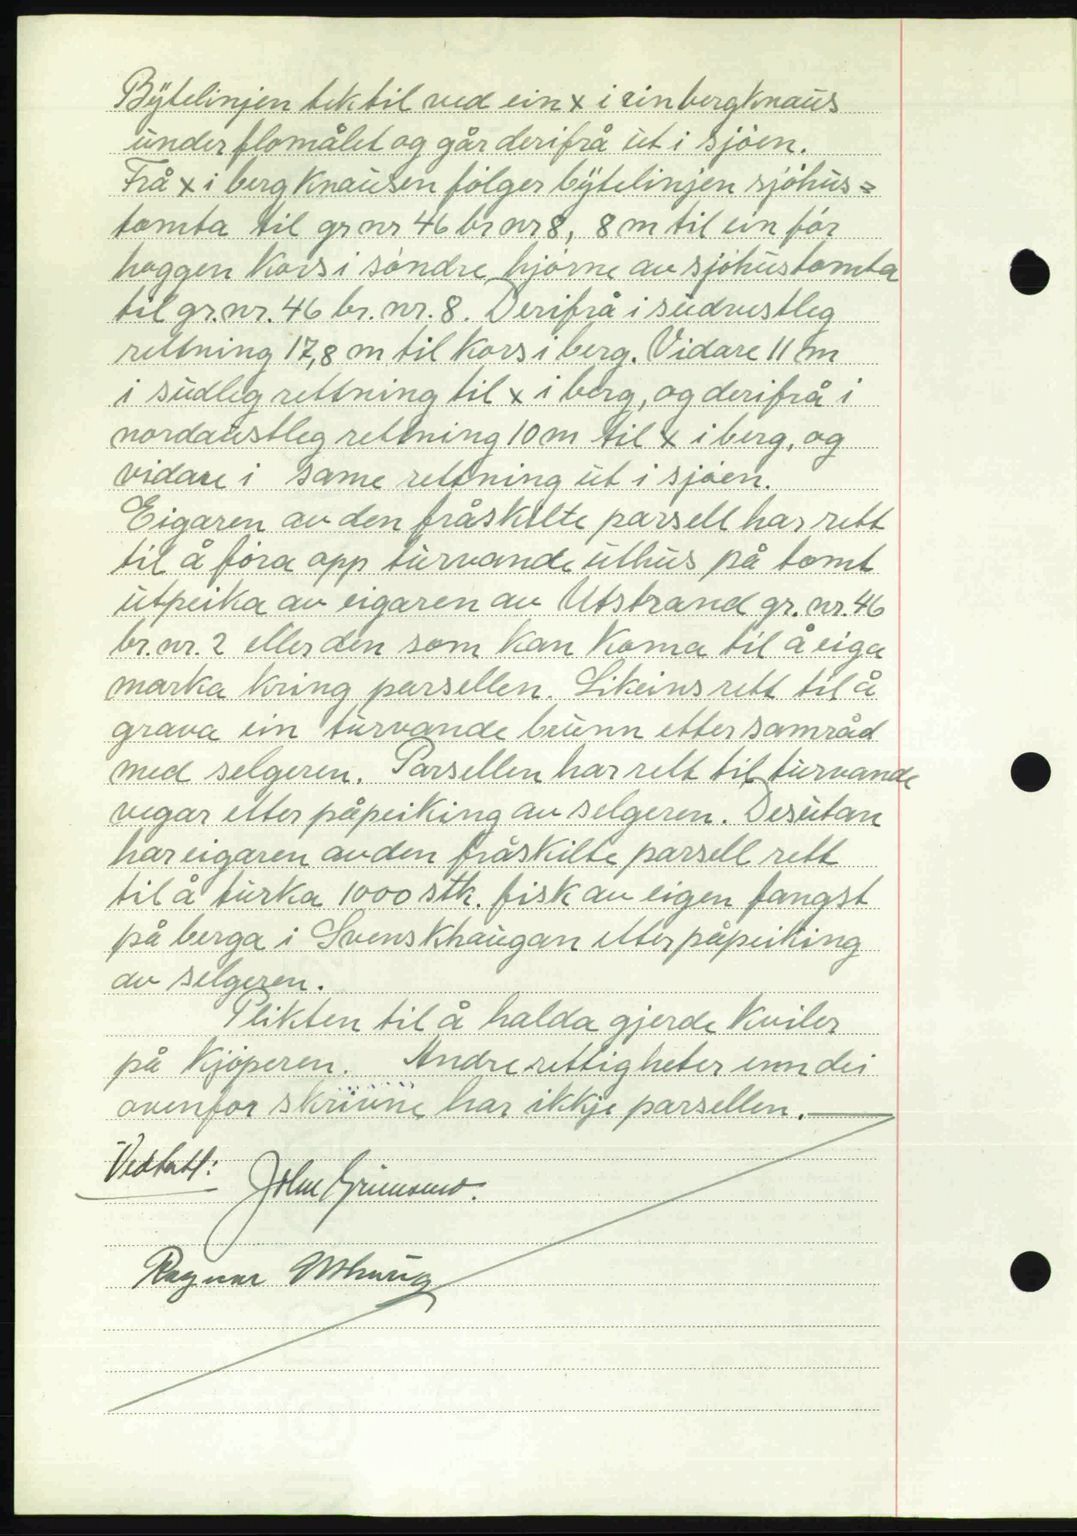 Býtelinjen tek til ved ein x i ein bergknaus
under flomålet og går derifrå ut i sjøen.
Frå x i bergknausen følger býtelinjen sjøhus=
tomta til gr nr 46 br nr 8, 8 m til ein før
hoggen kors i søndre hjørne av sjøhustomta
til gr. nr. 46 br. nr. 8. Derifrå i sudvestleg
rettning 17,8 m til kors i berg. Vidare 11 m
i sudleg rettning til x i berg, og derifrå i
nordaustleg rettning 10 m til x i berg, og
vidare i same rettning ut i sjøen.
Eigaren av den fråskilte parsell har rett
til å føra opp turvande uthus på tomt
utpeika av eigaren av Utstrand gr. nr. 46
br. nr. 2 eller den som kan koma til å eiga
marka kring parsellen. Likeins rett til å
grava ein turvande brunn etter samråd
med selgeren. Parsellen har rett til turvande
vegar etter påpeiking av selgeren. Desutan
har eigaren av den fråskilte parsell rett
til å turka 1000 stk. fisk av eigen fangst
på berga i Svenskhaugan etter påpeiking
av selgeren.
Plikten til å halda gjerde kviler
på kjøperen. Andre rettigheter enn dei
ovenfor skrivne har ikkje parsellen.
Vedtatt:
John Grimsmo.
Ragnar